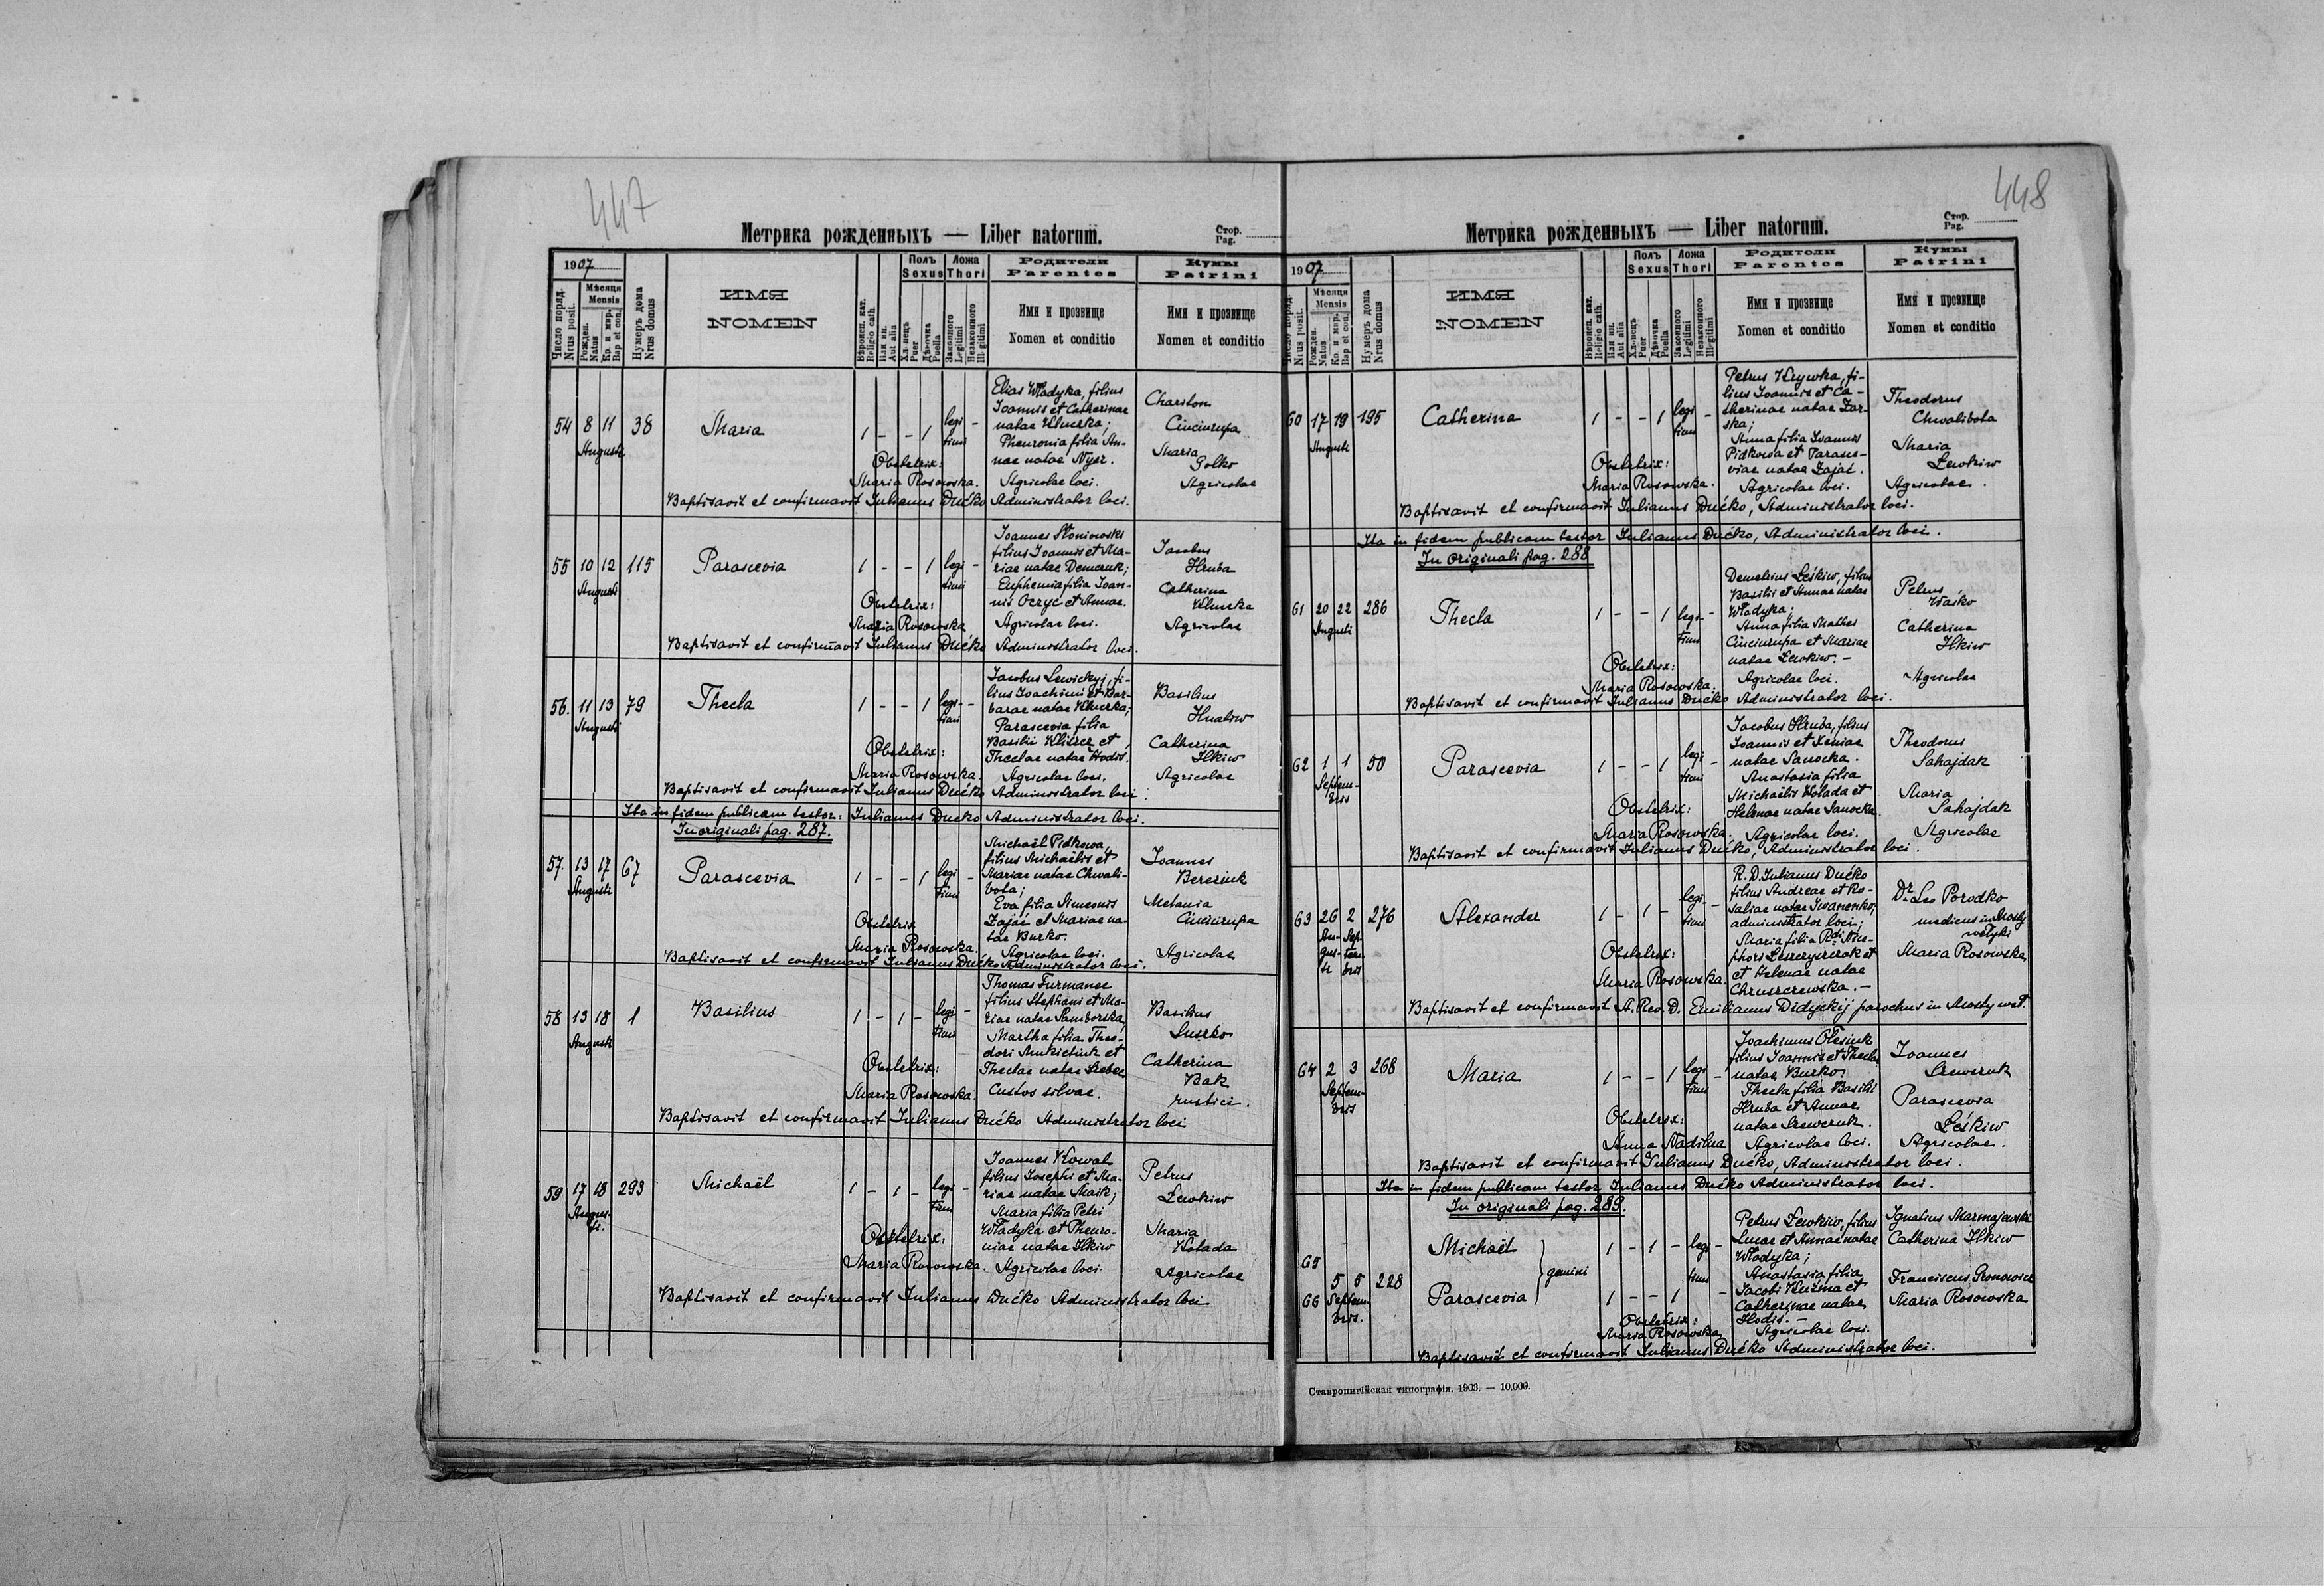 447
Метрика рожденныхъ — Liber natorum.
Стор.
Pag.
1907
Мѣсяця
Mensis
Число поряд.
Nrus posit.
Рожден.
Natus
Кр. и мир.
Bap et con.
Нумеръ дома
Nrus domus
ИМЯ
NOMEN
Вѣроисп. каѳ.
Religio cath.
Или ин.
Aut alia
Полъ
Sexus
Хлопецъ
Puer
Дѣвочка
Puella
Ложа
Thori
Законного
Legitimi
Незаконного
Illegitimi
Родители
Parentes
Имя и прозвище
Nomen et conditio
Кумы
Patrini
Имя и прозвище
Nomen et conditio
54 8 11 38
Augusti
Maria
1 - - 1 legi -
timi
Elias Władyka, filius
Joannis et Catherinae
natae Kluczka;
Pheuronia filia An-
nae natae Nysz.
Agricolae loci.
Chariton
Ciuciurupa
Maria
Golko
Agricolae
Obstetrix:
Maria Rosowska.
Baptisavit et confirmavit Julianus Dućko Administrator loci.
55 10 12 115
Augusti
Parascevia
1 - - 1 legi -
timi
Joannes Słoniowski
filius Joannis et Ma-
riae natae Demczuk;
Euphemia filia Joan-
nis Oczyć et Annae.
Agricolae loci.
Jacobus
Hruba
Catherina
Kluczka
Agricolae
Obstetrix:
Maria Rosowska
Baptisavit et confirmavit Julianus Dućko Administrator loci.
56. 11 13 79
Augusti
Thecla
1 - - 1 legi- -
timi
Jacobus Lewickyj, fi-
lius Joachimi et Bar-
barae natae Kluczka;
Parascevia filia
Basilii Kliszcz et
Theclae natae Hodiś.
Agricolae loci.
Basilius
Hnatiw
Catherina
Ilkiw
Agricolae
Obstetrix:
Maria Rosowska.
Baptisavit et confirmavit Julianus Dućko Administrator loci.
Ita in fidem publicam testor: Julianus Dućko Administrator loci.
In originali pag. 287.
57. 13 17 67
Augusti
Parascevia
1 - - 1 legi -
timi
Michaël Pidkowa,
filius Michaëlis et
Mariae natae Chwali-
bota;
Eva filia Simeonis
Zajać et Mariae na-
tae Burko.
Agricolae loci.
Joannes
Bereziuk
Melania
Ciuciurupa
Agricolae
Obstetrix
Maria Rosowska.
Baptisavit et confirmavit Julianus Dućko Administrator loci.
58 13 18 1
Augusti
Basilius
1 - 1 - legi -
timi
Thomas Furmanec
filius Stephani et Ma-
riae natae Samborska,
Martha filia Theo-
dori Mukietiuk et
Theclae natae
Custos silvae.
Basilius
Suszko
Catherina
Bak
rustici.
Obstetrix:
Maria Rosowska.
Baptisavit et confirmavit Julianus Dućko Administrator loci
59 17 18 293
Augus-
ti.
Michaël
1 - 1 - legi -
timi
Joannes Kowal
filius Josephi et Ma-
riae natae Maik;
Maria filia Petri
Władyka et Pheuro-
niae natae Ilkiw
Agricolae loci.
Petrus
Lewkiw
Maria
Kolada
Agricolae
Obstetrix:
Maria Rosowska.
Baptisavit et confirmavit Julianus Dućko Administrator loci
448
Метрика рожденныхъ — Liber natorum.
Стор.
Pag.
1907
Мѣсяця
Mensis
Число поряд.
Nrus posit.
Рожден.
Natus
Кр. и мир.
Bap et con.
Нумеръ дома
Nrus domus
ИМЯ
NOMEN
Вѣроисп. каѳ.
Religio cath.
Или ин.
Aut alia
Полъ
Sexus
Хлопецъ
Puer
Дѣвочка
Puella
Ложа
Thori
Законного
Legitimi
Незаконного
Illegitimi
Родители
Parentes
Имя и прозвище
Nomen et conditio
Кумы
Patrini
Имя и прозвище
Nomen et conditio
60 17 19 195
Augusti
Catherina
1 - - 1 legi -
timi
Petrus Krywka, fi-
lius Joannis et Ca-
therinae natae Zar-
ska;
Anna filia Joannis
Pidkowa et Parasce-
viae natae Zajać.
Agricolae loci.
Theodorus
Chwalibota
Maria
Lewkiw
Agricolae.
Obstetrix:
Maria Rosowska.
Baptisavit et confirmavit Julianus Dućko, Administrator loci.
Ita in fidem publicam testor Julianus Dućko, Administrator loci.
In originali pag. 288
61 20 22 286
Augusti
Thecla
1 - - 1 legi- -
timi
Demetrius Leśkiw, filius
Basilii et Annae natae
Władyka;
Anna filia Mathei
Ciuciurupa et Mariae
natae Lewkiw. -
Agricolae loci.
Petrus
Waśko
Catherina
Ilkiw
Agricolae
Obstetrix:
Maria Rosowska.
Baptisavit et confirmavit Julianus Dućko Administrator loci.
62 1 1 50
Septem-
bris
Parascevia
1 - - 1 legi -
timi
Jacobus Hruba, filius
Joannis et Xeniae
natae Sanocka.
Anastasia filia
Michaëlis Kolada et
Helenae natae Sanocka.
Agricolae loci.
Theodorus
Sahajdak
Maria
Sahajdak
Agricolae
Obstetrix:
Maria Rosowska.
Baptisavit et confirmavit Julianus Dućko, Administrator loci.
63 26 2 276
Au- Sep-
gus- tem-
ti bris
Alexander
1 - 1 - legi- -
timi
R. D. Julianus Dućko
filius Andreae et Ro-
saliae natae Iwanenko;
administrator loci;
Maria filia Rdi Nice-
phori Leszczyszak et
et Helenae natae
Chruszczewska. -
Dr. Leo Porodko
medicus in Mosty
wełyki
Maria Rosowska
Obstetrix:
Maria Rosowska.
Baptisavit et confirmavit A. Rev. D. Emilianus Didyckij parochus in Mosty weł.
64 2 3 268
Septem-
bris
Maria
1 - - 1 legi -
timi
Joachimus Olesiuk
filius Joannis et Theclae
natae Burko.
Thecla filia Basilii
Hruba et Annae
natae Szewczuk.
Agricolae loci.
Joannes
Szewczuk
Parascevia
Leśkiw
Agricolae.
Obstetrix:
Anna Nadilna
Baptisavit et confirmavit Julianus Dućko, Administrator loci.
Ita in fidem publicam testor Julianus Dućko Administrator loci.
In originali pag. 289.
65
66
5 5 228
Septem-
bris.
Michaël
Parascevia
gemini
1 - 1 - legi -
timi
1 - - 1 -
Petrus Lewkiw, filius
Lucae et Annae natae
Władyka;
Anastasia filia
Jacobi Kuźma et
Catherinae natae
Hodiś. -
Agricolae loci.
Ignatius Marmajewski
Catherina Ilkiw
Franciscus Gronowicz
Maria Rosowska
Obstetrix:
Maria Rosowska
Baptisavit et confirmavit Julianus Dućko Administrator loci.
Ставропигійская типографія. 1903. — 10.000.